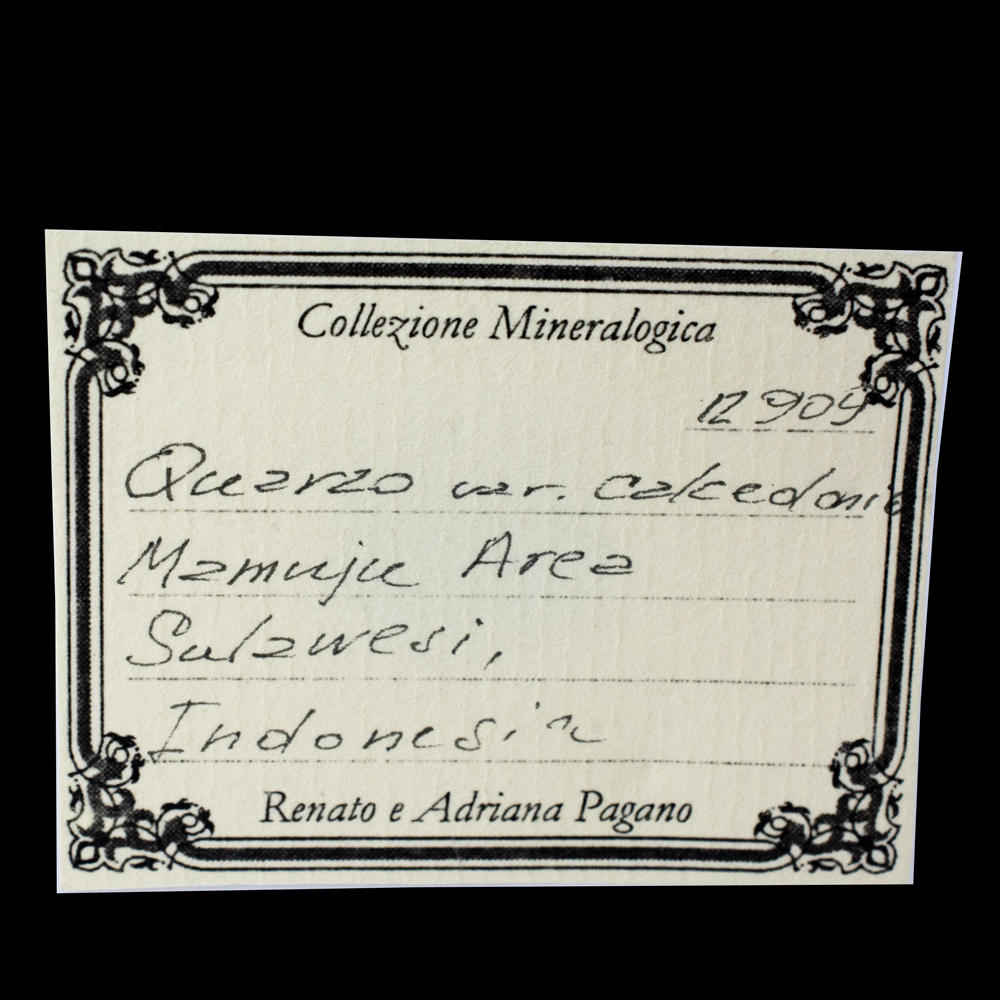 Collezione Mineralogica
12909
Quarzo var. calcedonio
Mamuju Area
Sulawesi,
Indonesia
Renato e Adriana Pagano